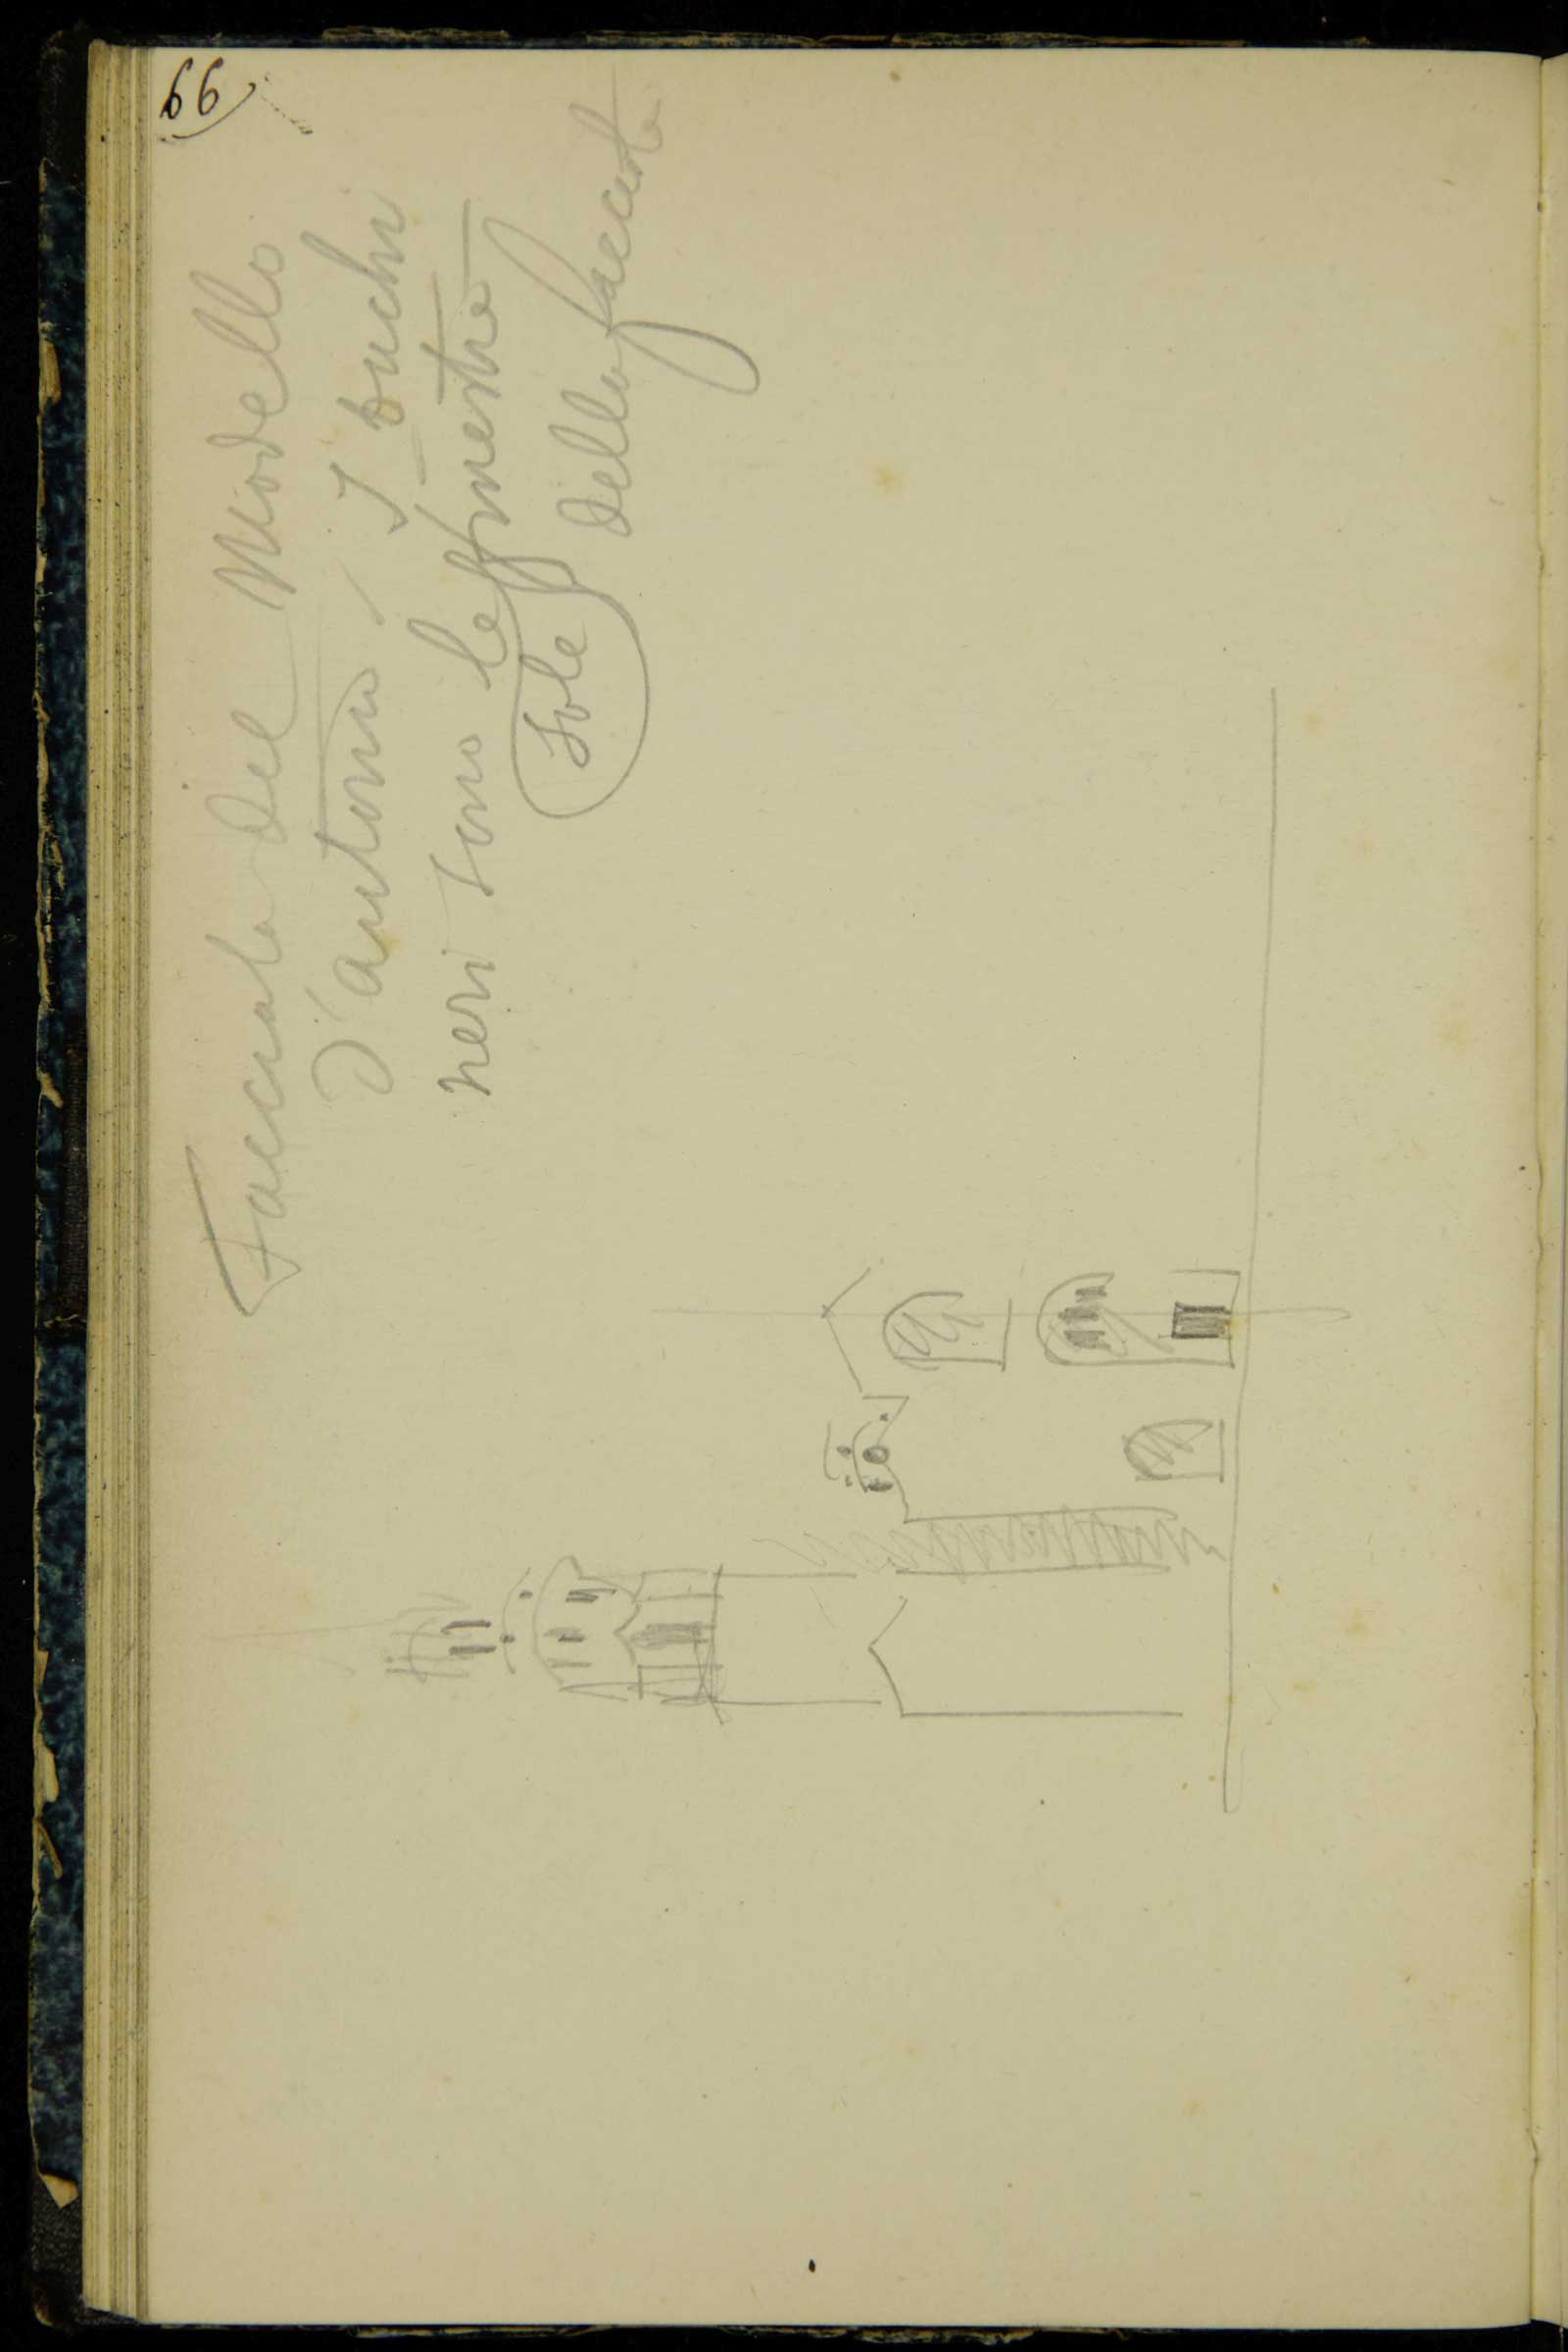 66
Facciata del Modello
d'autorii / I buchi
neri sono le finestre
sole della facciata